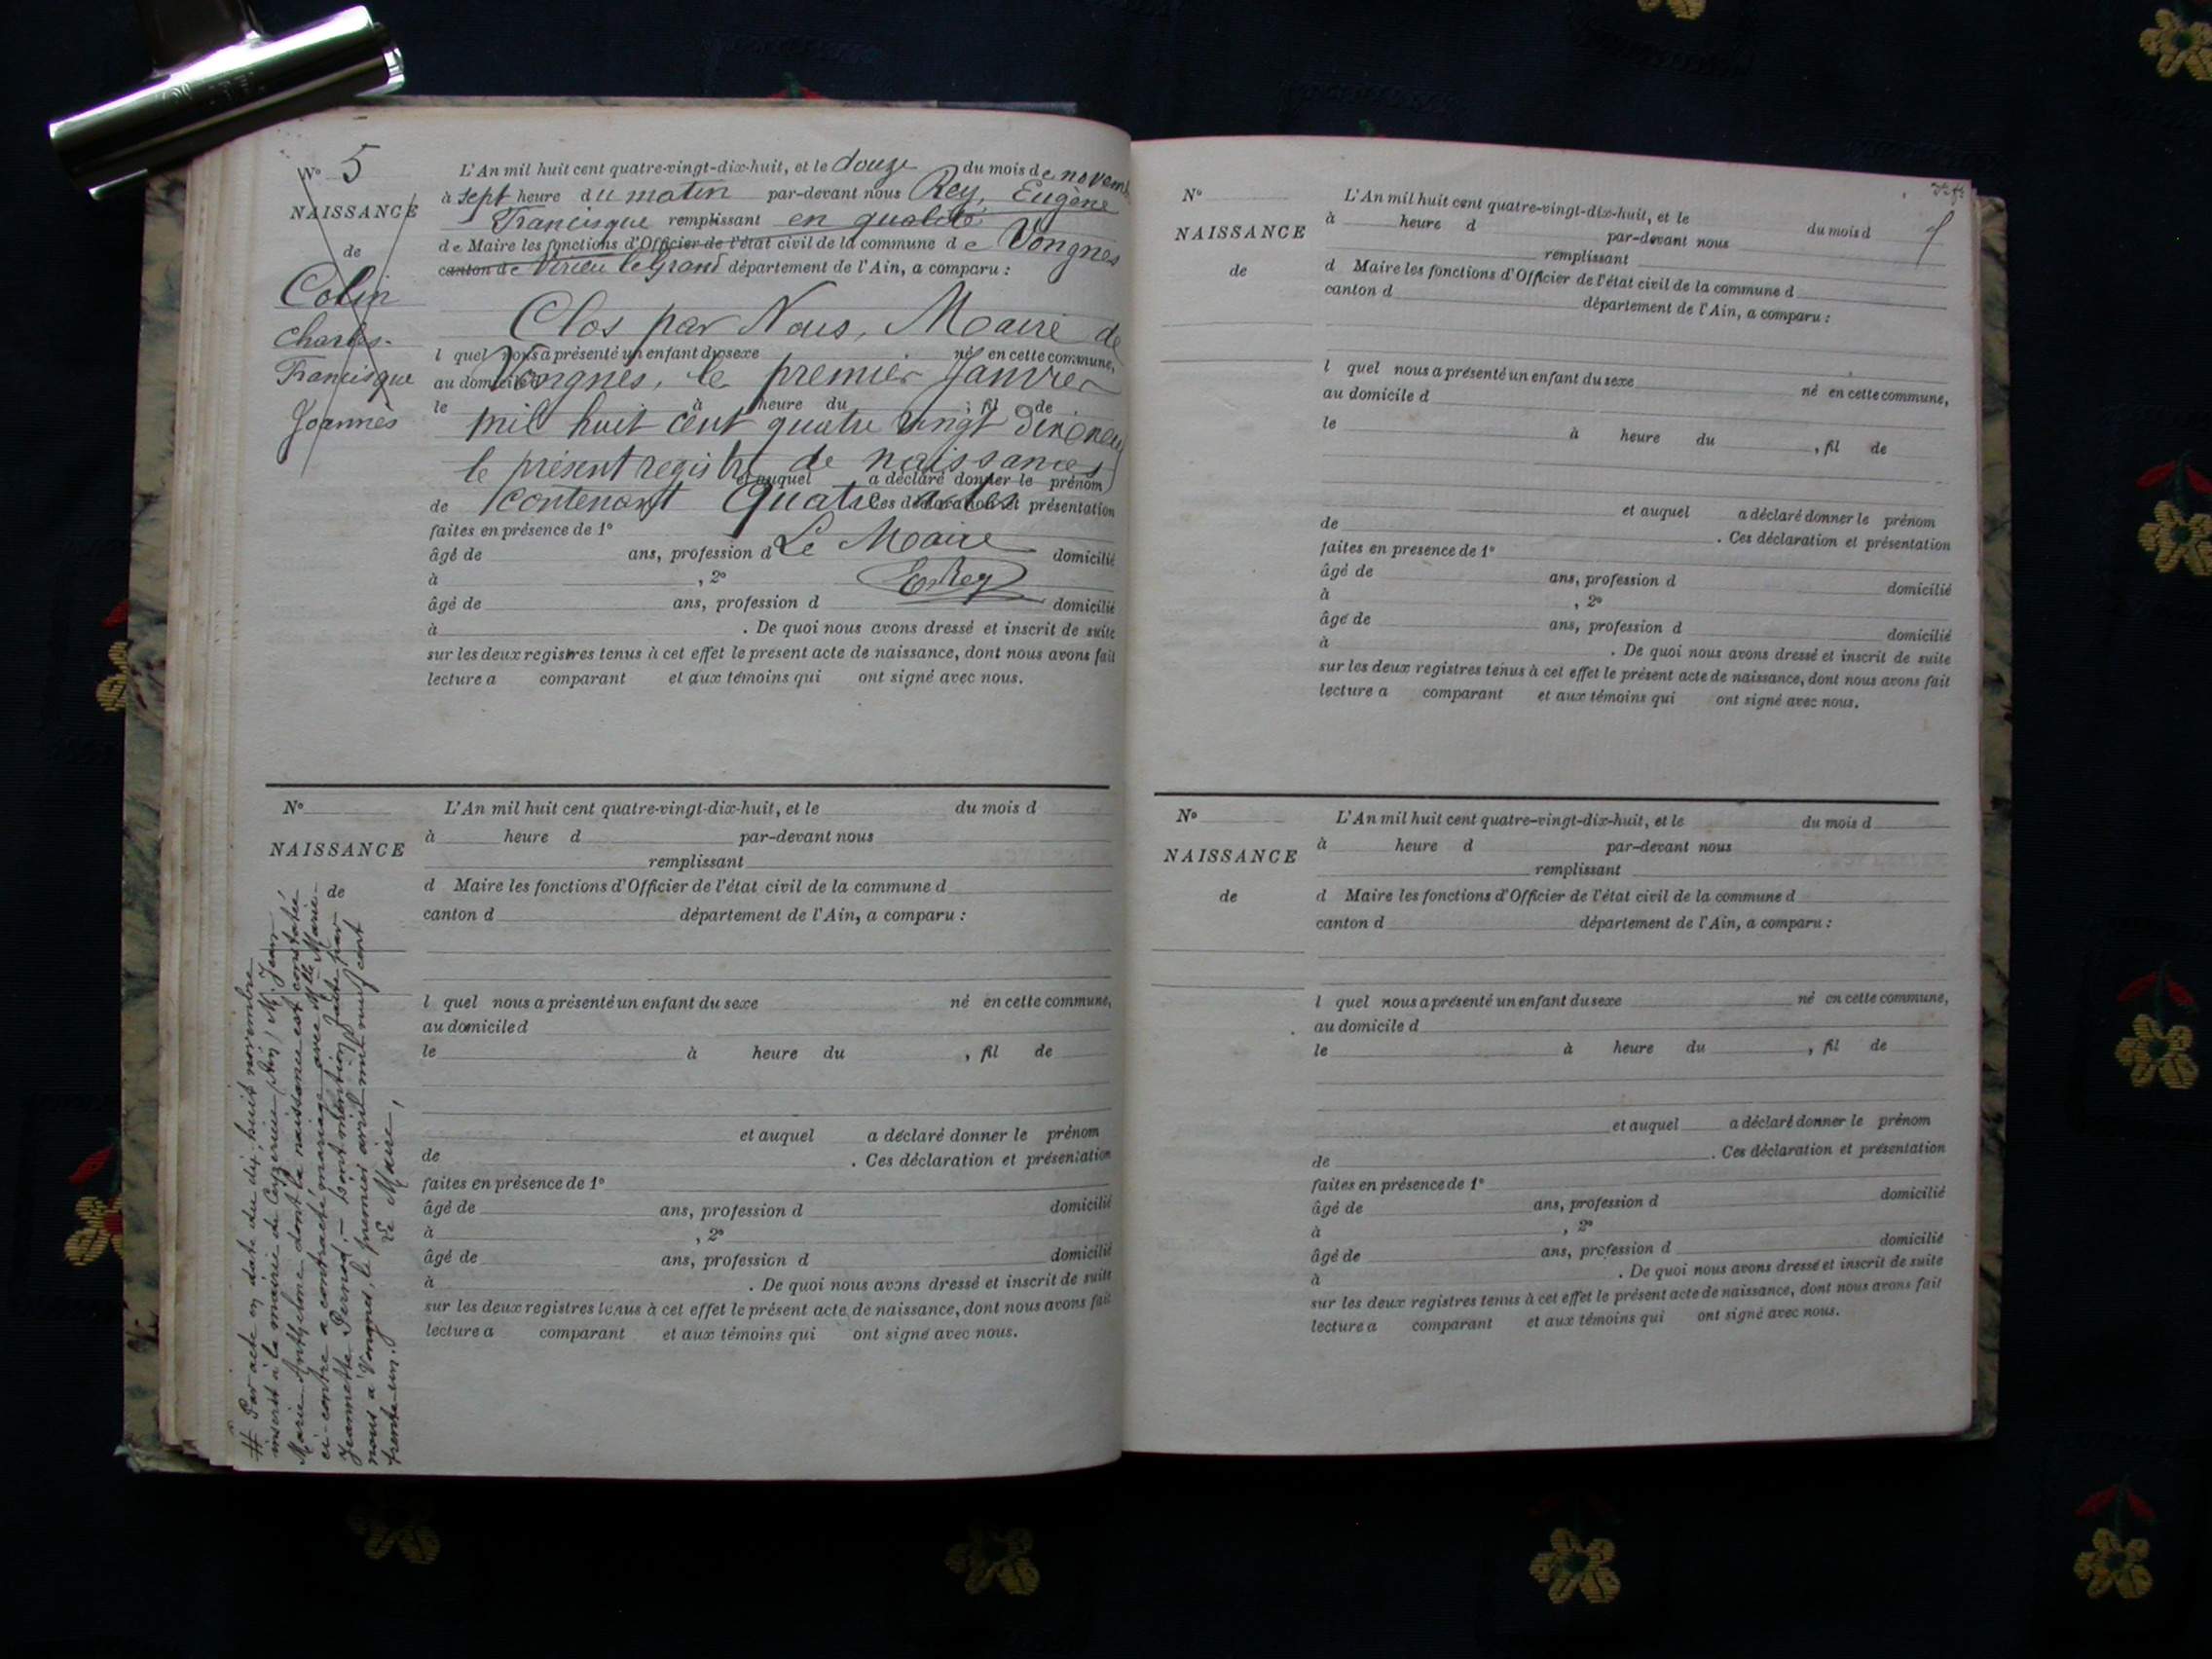 N° 5
NAISSANCE
de
Colin
Charles-
Francisque
Joannès
L'An mil huit cent quatre-vingt-dix-huit, et le douze du mois de novem
à sept heure du matin par-devant nous Rey, Eugène
Francisque remplissant en qualité
de Maire les fonctions d'Officier de l'état civil de la commune de Vongnes
canton de Virieu le Grand département de l'Ain, a comparu :
Clos par Nous, Maire de
l quel nous a présenté un enfant du sexe né en cette commune,
au domicile Vongnes, le premier Janvier
le à heure du ; fil de
mil huit cent quatre vingt dix neuf
le présent registre de naissances
et auquel a déclaré donner le prénom
de contenant Quatre Ces déclaration et présentation
faites en présence de 1°
âgé de ans, profession d Le Maire domicilié
à , 2° E. Rey
âgé de ans, profession d domicilié
à . De quoi nous avons dressé et inscrit de suite
sur les deux registres tenus à cet effet le présent acte de naissance, dont nous avons fait
lecture a comparant et aux témoins qui ont signé avec nous.
N°
NAISSANCE
de
L'An mil huit cent quatre-vingt-dix-huit, et le du mois d
à heure d par-devant nous
remplissant
d Maire les fonctions d'Officier de l'état civil de la commune d
canton d département de l'Ain, a comparu :
l quel nous a présenté un enfant du sexe né en cette commune,
au domicile d
le à heure du , fil de
et auquel a déclaré donner le prénom
de . Ces déclaration et présentation
faites en présence de 1°
âgé de ans, profession d domicilié
à , 2°
âgé de ans, profession d domicilié
à . De quoi nous avons dressé et inscrit de suite
sur les deux registres tenus à cet effet le présent acte de naissance, dont nous avons fait
lecture a comparant et aux témoins qui ont signé avec nous.
# Par acte en date du dix-huit novembre
inscrit à la mairie de Ceyzérieu (Ain) M. Jean-
Marie Anthelme dont la naissance est constatée
ci-contre a contracté mariage avec Mlle Marie-
Jeannette Pernod, - dont mention faite par
nous à Vongnes, le premier avril mil neuf cent
trente-un. Le Maire,
N°
NAISSANCE
de
L'An mil huit cent quatre-vingt-dix-huit, et le du mois d
à heure d par-devant nous
remplissant
d Maire les fonctions d'Officier de l'état civil de la commune d
canton d département de l'Ain, a comparu :
l quel nous a présenté un enfant du sexe né en cette commune,
au domicile d
le à heure du , fil de
et auquel a déclaré donner le prénom
de . Ces déclaration et présentation
faites en présence de 1°
âgé de ans, profession d domicilié
à , 2°
âgé de ans, profession d domicilié
à . De quoi nous avons dressé et inscrit de suite
sur les deux registres tenus à cet effet le présent acte de naissance, dont nous avons fait
lecture a comparant et aux témoins qui ont signé avec nous.
N°
NAISSANCE
de
L'An mil huit cent quatre-vingt-dix-huit, et le du mois d
à heure d par-devant nous
remplissant
d Maire les fonctions d'Officier de l'état civil de la commune d
canton d département de l'Ain, a comparu :
l quel nous a présenté un enfant du sexe né en cette commune,
au domicile d
le à heure du , fil de
et auquel a déclaré donner le prénom
de . Ces déclaration et présentation
faites en présence de 1°
âgé de ans, profession d domicilié
à , 2°
âgé de ans, profession d domicilié
à . De quoi nous avons dressé et inscrit de suite
sur les deux registres tenus à cet effet le présent acte de naissance, dont nous avons fait
lecture a comparant et aux témoins qui ont signé avec nous.